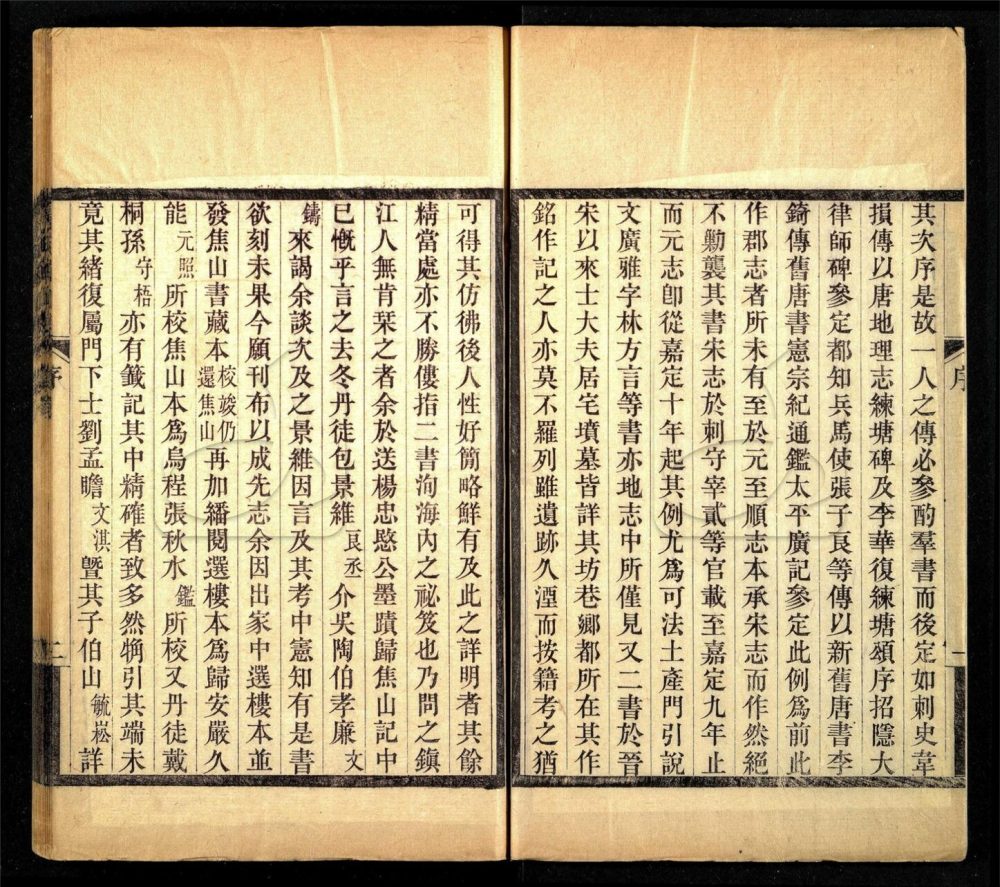 其次序是故一人之傳必參酌羣書而後定如刺史韋
損傳以唐地理志練塘碑及李華復練塘頌序招隱大
律師碑參定都知兵馬使張子良等傳以新舊唐書李
錡傳舊唐書憲宗紀通鑑太平廣記參定此例爲前此
作郡志者所未有至於元至順志本承宋志而作然絕
不勦襲其書宋志於刺守宰貳等官載至嘉定九年止
而元志卽從嘉定十年起其例尤爲可法土產門引說
文廣雅字林方言等書亦地志中所僅見又二書於晉
宋以來士大夫居宅墳墓皆詳其坊巷鄉都所在其作
銘作記之人亦莫不羅列雖遺跡久湮而按籍考之猶
序
一
可得其仿彿後人性好簡略鮮有及此之詳明者其餘
精當處亦不勝僂指二書洵海內之祕笈也乃問之鎭
江人無肯栞之者余於送楊忠愍公墨蹟歸焦山記中
已慨乎言之去冬丹徒包景維良丞介吳陶伯孝廉文
鑄來謁余談次及之景維因言及其考中憲知有是書
欲刻未果今願刊布以成先志余因出家中選樓本並
發焦山書藏本校竣仍還焦山再加繙閱選樓本爲歸安嚴久
能元照所校焦山本爲烏程張秋水鑑所校又丹徒戴
桐孫守梧亦有籤記其中精確者致多然觕引其端未
竟其緒復屬門下士劉孟瞻文淇曁其子伯山毓崧詳
序
二